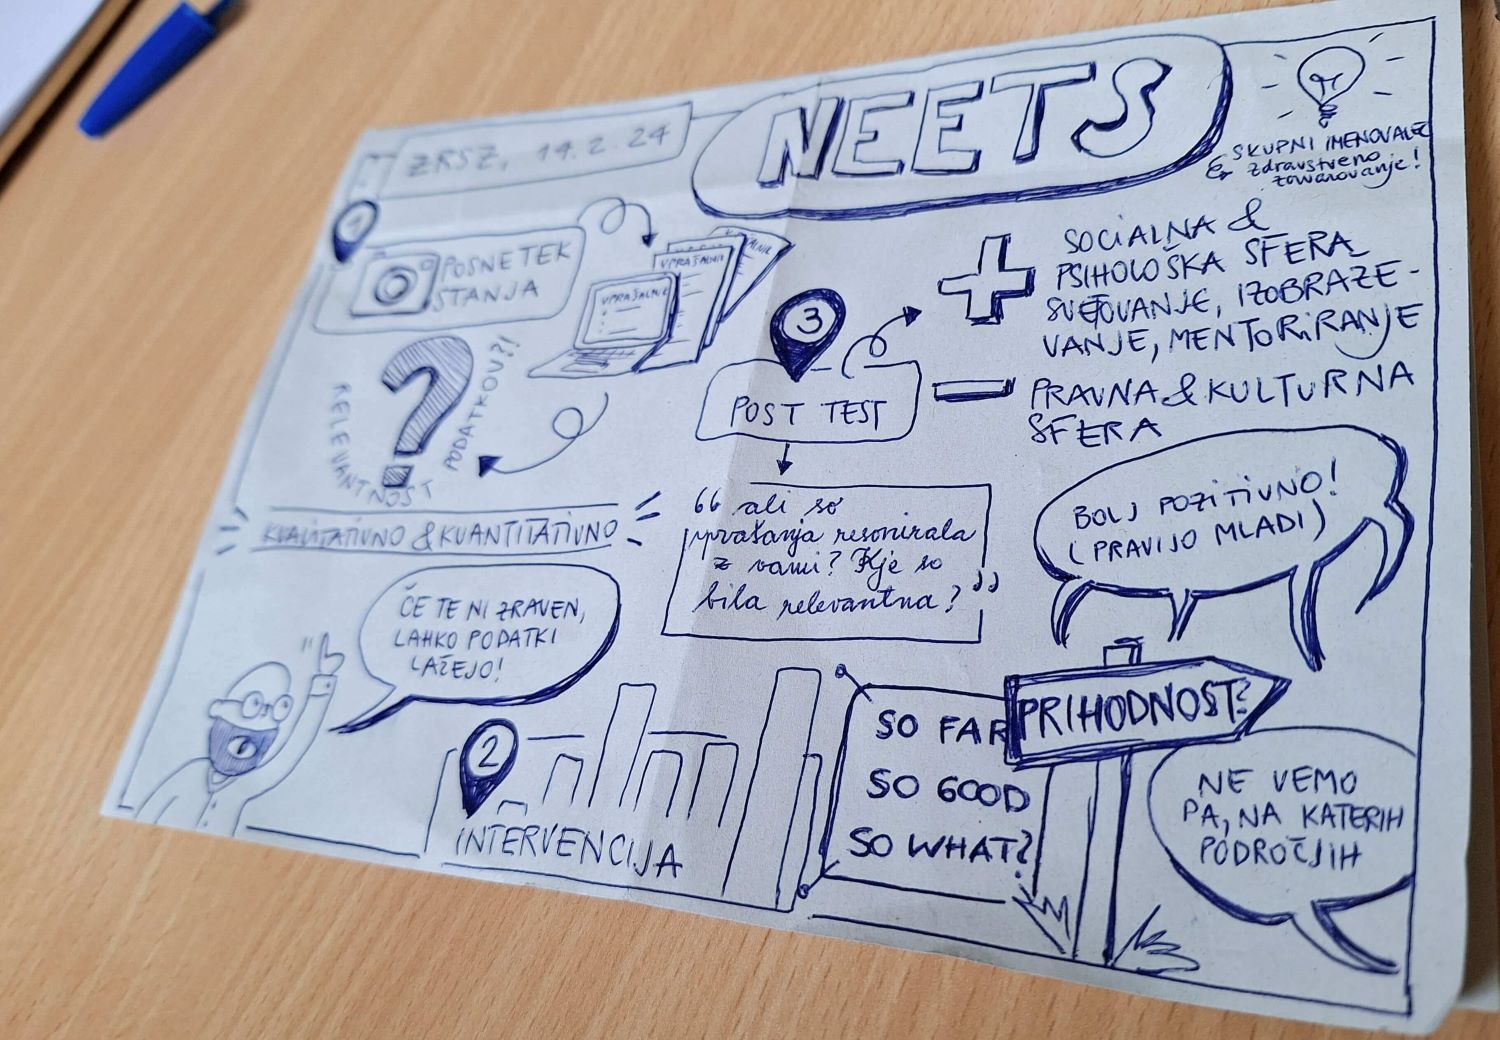 ZRSZ, 14.2.24
NEETS
SKUPNI IMENOVALEC
& zdravstveno
zavarovanje!
1
POSNETEK
STANJA
VPRAŠALNIK
VPRAŠALNIK
RELEVANTNOST
PODATKOV?!
?
KVALITATIVNO & KVANTITATIVNO
ČE TE NI ZRAVEN,
LAHKO PODATKI
LAŽEJO!
2
INTERVENCIJA
3
POST TEST
+
SOCIALNA &
PSIHOLOŠKA SFERA
SVETOVANJE, IZOBRAŽE-
VANJE, MENTORIRANJE
-
PRAVNA & KULTURNA
SFERA
“ ali so
vprašanja resonirala
z vami? Kje so
bila relevantna? ”
BOLJ POZITIVNO!
(PRAVIJO MLADI)
SO FAR
SO GOOD
SO WHAT?
PRIHODNOST?
NE VEMO
PA, NA KATERIH
PODROČJIH